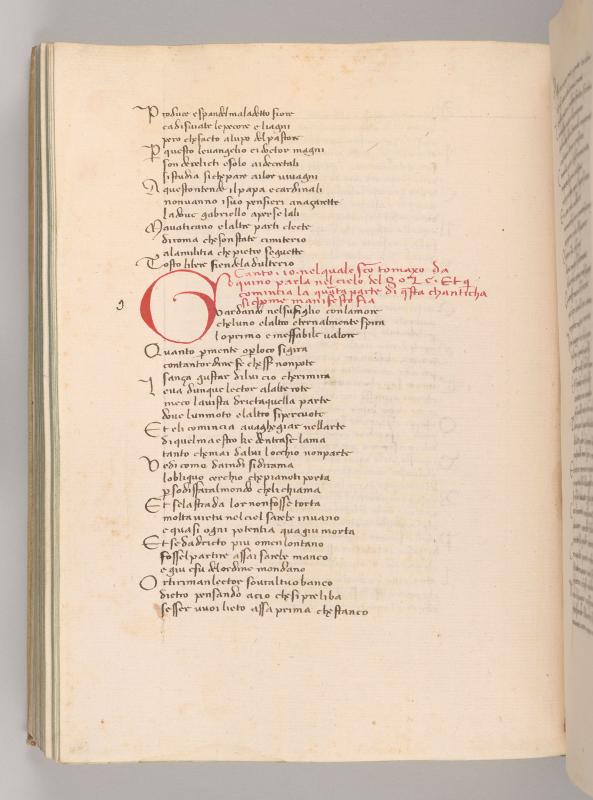 Produce espandel maladetto fiore
cadisuiate lepecore e liagni
pero chefacto alupo del pastore
P questo leuangelio ei doctor magni
son derelicti esolo aidecretali
sistudia sichepare ailor viuagni
A questontende ilpapa ecardinali
nonuanno isuo pensieri anaçarette
ladoue gabriello aperselali
Mauaticano elaltre parti electe
diroma chesonstate cimiterio
alamilitia chepietro seguette
Tosto libere fiendeladulterio
Canto .10. nelquale sco tomaxo da
quino parla nelcielo del
comincia la quarta parte di qsta chanticha
manifesto fia
g
Guardando nelsufiglio conlamore
cheluno elaltro eternalmente spira
loprimo e ineffabile ualore
Quanto pmente oploco sigira
contantordine fe chessr nonpote
sança gustar dilui cio cherimira
Leua dunque lector alalterote
meco lauista drietaquella parte
doue lunmoto elaltro sipercuote
Et eli comincia auagheggiar nellarte
diquelmaestro ke dentrase lama
tanto chemai dalui locchio nonparte
Vedi como daindi sidirama
lobliquo cerchio chepianeti porta
p sodisfaralmondo chelichiama
Et selastrada lor nonfosse torta
molta virtu nelciel sarebe inuano
e quasi ogni potentia quagiu morta
Et sedadricto piu omen lontano
fossel partire assai sarebe manco
e giu esu delordine mondano
Ortirimanlector soura ltuo banco
dietro pensando acio chesi preliba
sesser vuoi lieto assa prima chestanco